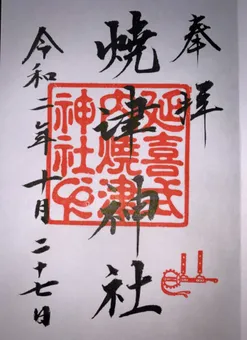 奉拝
焼津神社
令和二年十月二十七日
延喜式
内焼津
神社